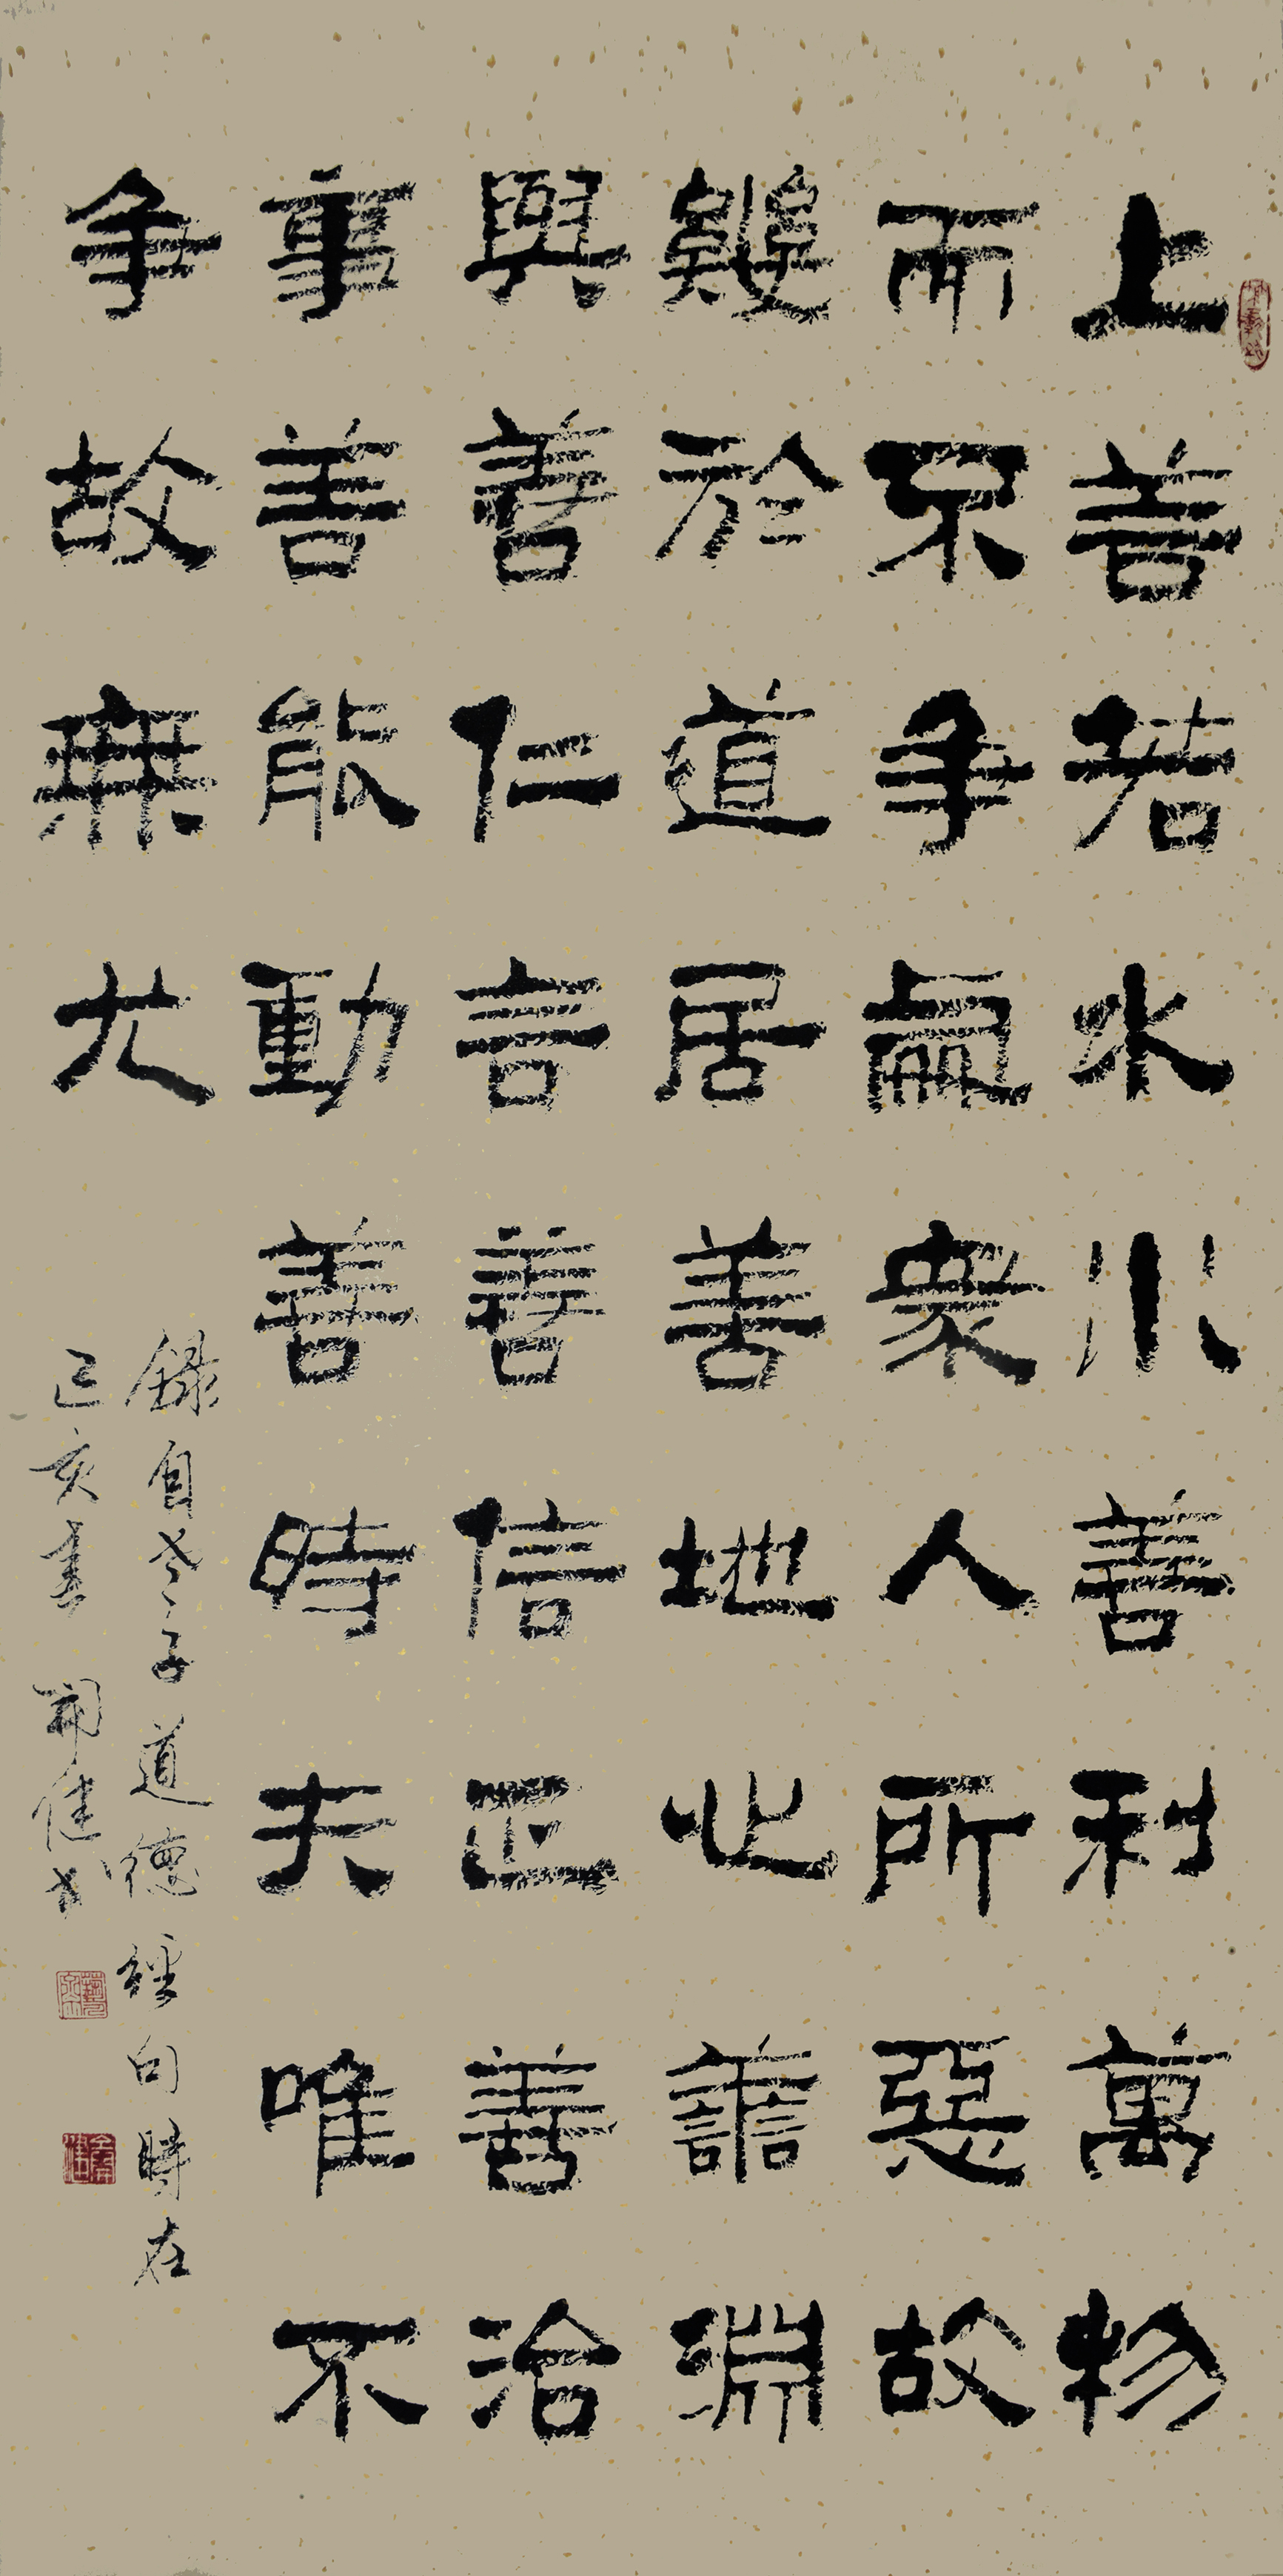 上善若水水善利萬物
而不争處衆人所惡故
幾於道居善地心善淵
與善仁言善信正善治
事善能動善時夫唯不
争故無尤
錄自老子道德經句時在
己亥春 開健书